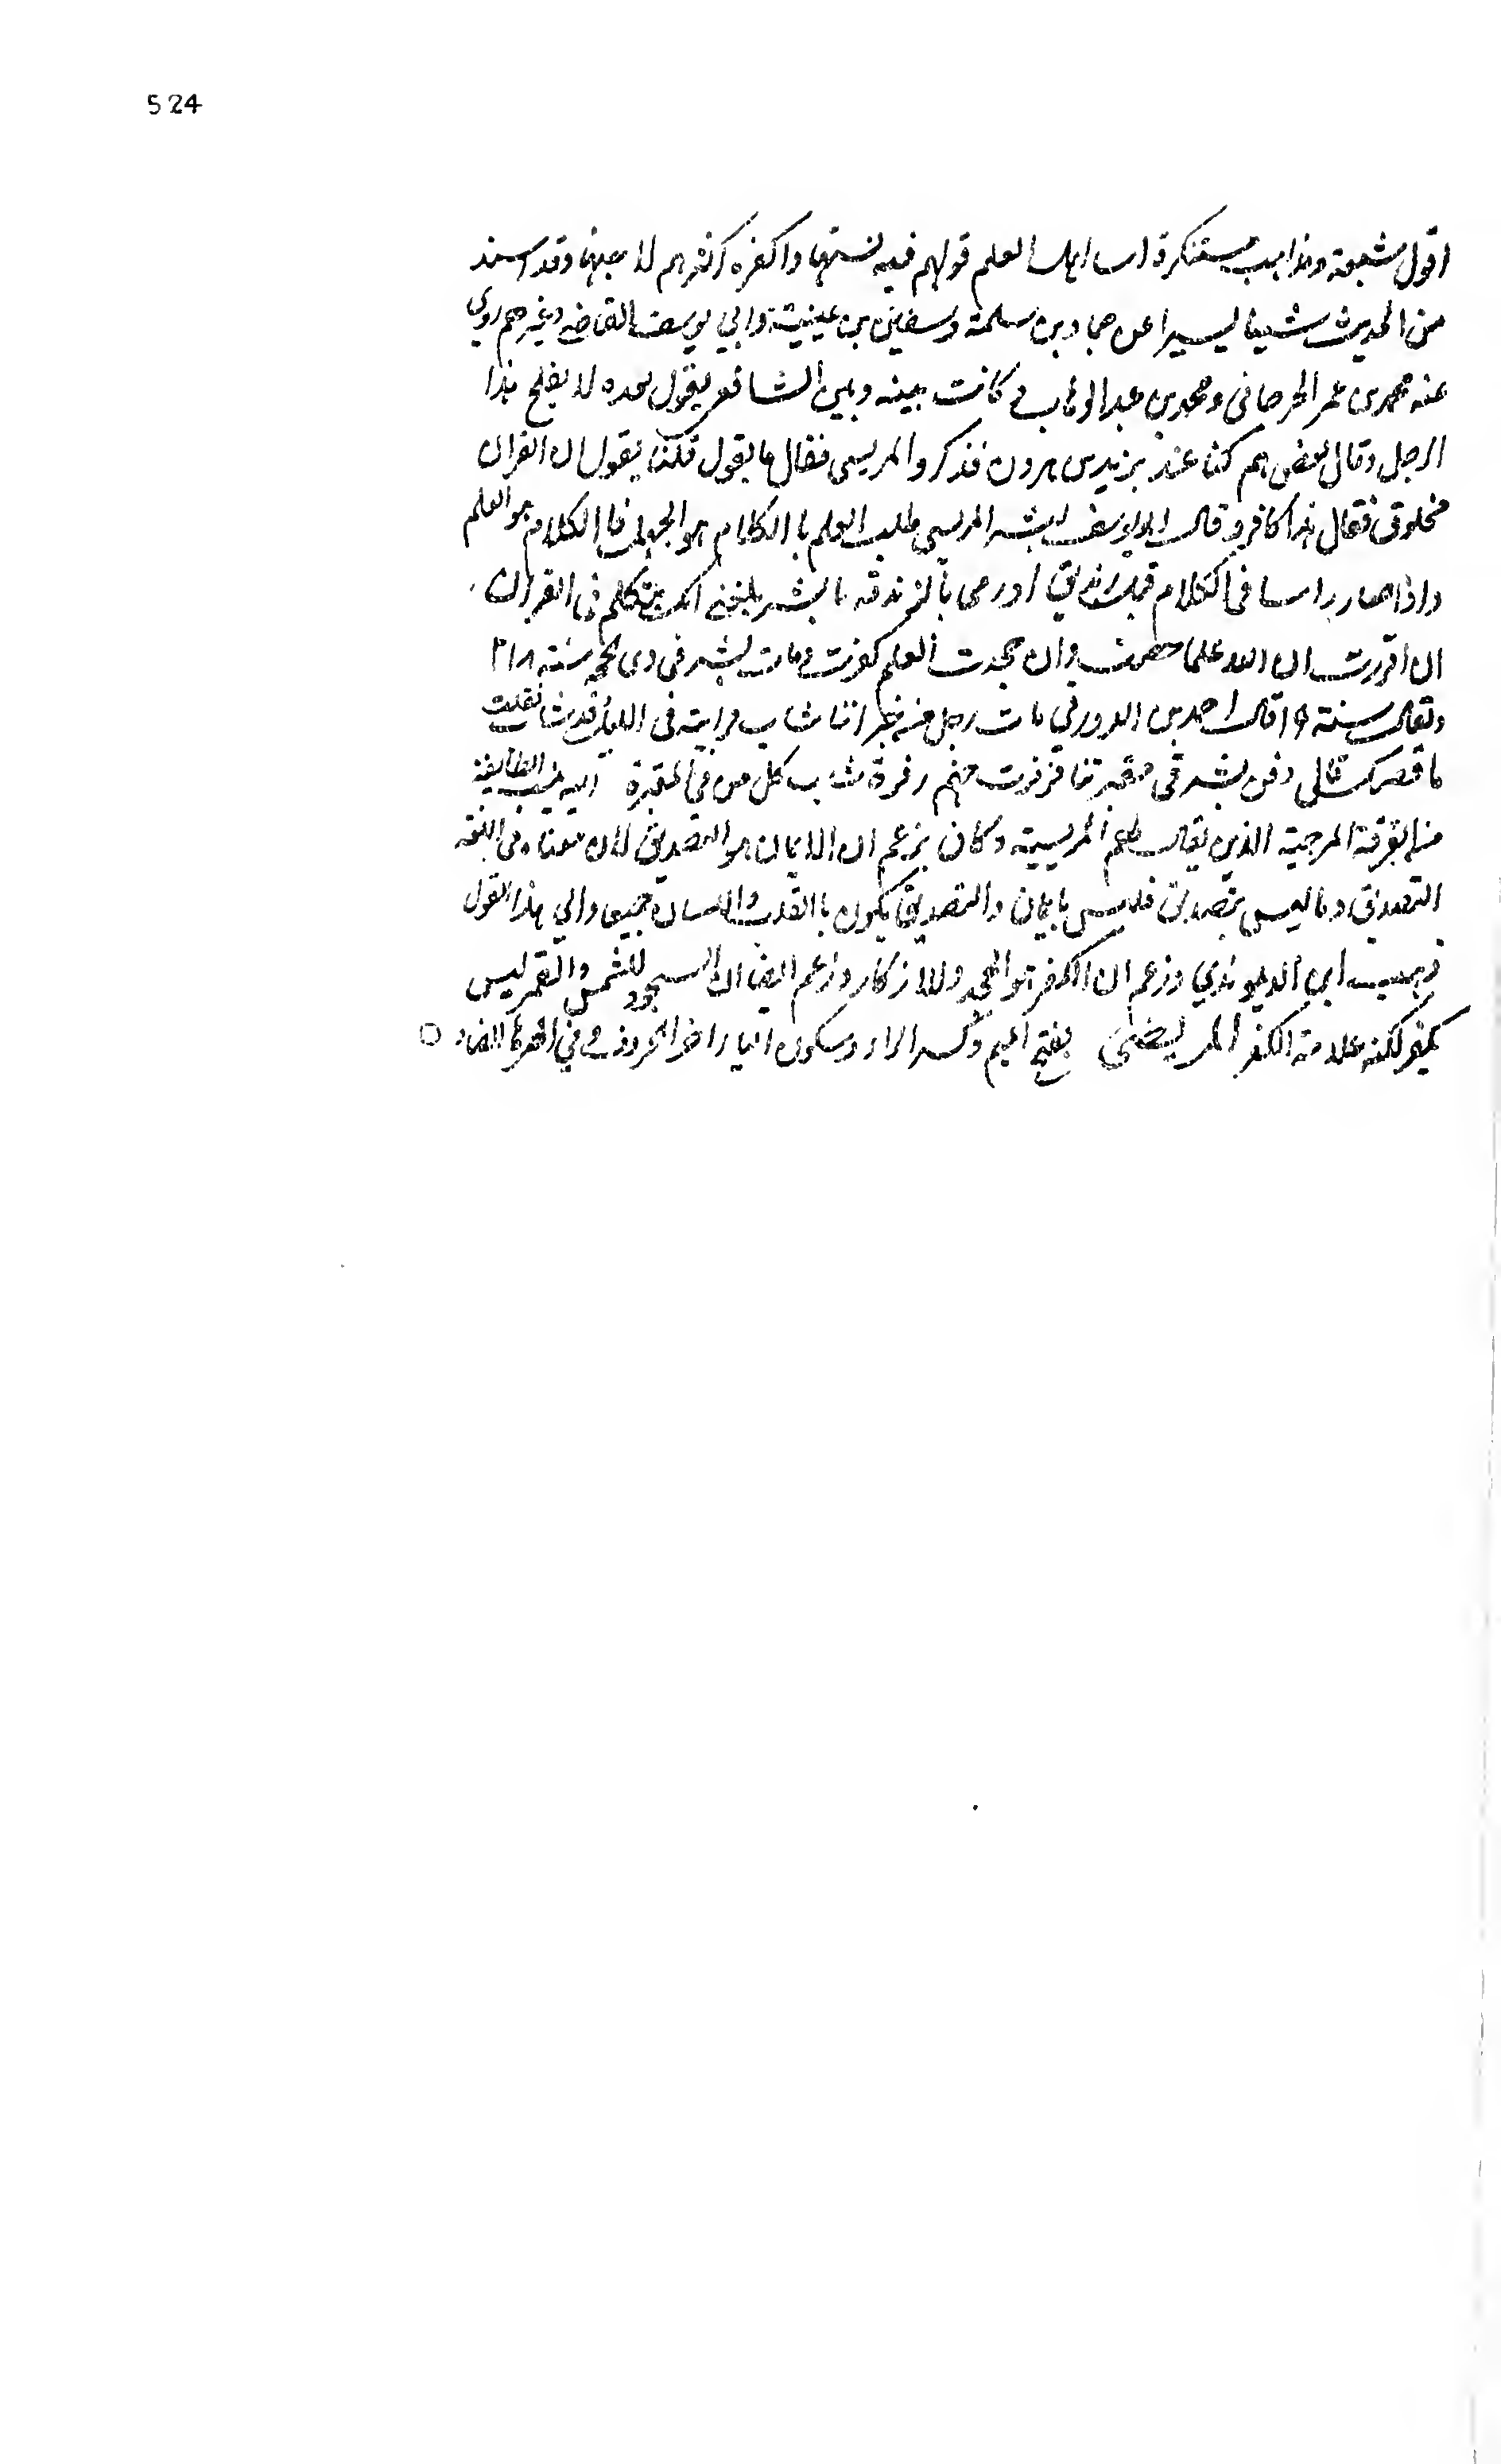 524
اقول شنيعة ومذاهب مستنكرة اساء اهل العلم قولهم فيه بسببها واكفره اكثرهم لاجلها وقد اسند
من الحديث شيئا يسيرا عن حماد بن سلمة وسفين بن عيينة وابي يوسف القاضي وغيرهم روى
عنه محمد بن عمر الجرجاني ومحمد بن عبد الوهاب و كانت بينه وبين الشافعي يقول بعده لا يفلح هذا
الرجل وقال بعضهم كنا عند يزيد بن هرون فذكروا المريسي فقال ما يقول قلنا يقول ان القران
مخلوق فقال هذا كافر وقال ابو يوسف لبشر المريسي طلب العلم با الكلام هو الجهل فا الكلام هو العلم
واذا صار راسا في الكلام قيل زنديق او رمى بالزندقة يا بشر بلغني انك تتكلم في القران
ان اقررت ان الله علما خصمت وان جحدت العلم كفرت ومات بشر في ذي الحجة سنة ٢١٨
ويقال سنة ١٩ قال احمد بن الدورقي مات رجل من جيراننا شاب فرايته في الليل قد شاب فقلت
ما قصتك قال دفن بشر في مقبرتنا فزفرت جهنم زفرة شاب كل من في المقبرة اليه ينسب الطايفة
من الفرقة المرجية الذين يقال لهم المريسية وكان يزعم ان الايمان هو التصديق لان معناه في اللغة
التصديق وما ليس بتصديق فليس بايمان والتصديق يكون با القلب واللسان جميعا والي هذا القول
ذهب ابن الريوندي وزعم ان الكفر هو الجحد والانكار وزعم ايضا ان السجود للشمس والقمر ليس
بكفر لكنه علامة الكفر المريضي بفتح الميم وكسر الراء وسكون الياء اخر الحروف وفي اخرها الضاد